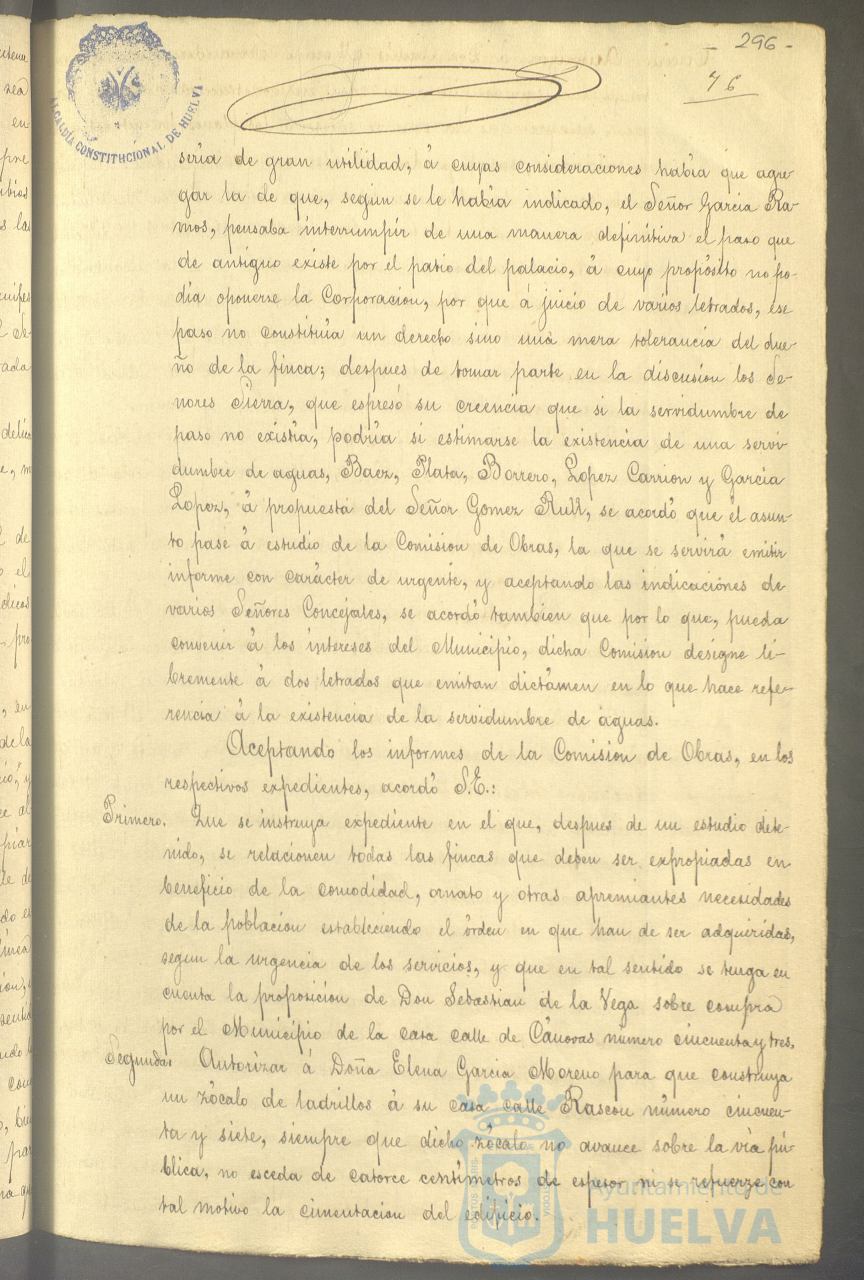 - 296 -
76
ALCALDÍA CONSTITUCIONAL DE HUELVA
sería de gran utilidad, á cuyas consideraciones había que agre-
gar la de que, segun se le había indicado, el Señor Garcia Ra-
mos, pensaba interrumpir de una manera definitiva el paso que
de antiguo existe por el patio del palacio, á cuyo propósito no po-
día oponerse la Corporacion, por que á juicio de varios letrados, ese
paso no constituia un derecho sino una mera tolerancia del due-
ño de la finca; despues de tomar parte en la discusion los Se-
ñores Sierra, que espresó su creencia que si la servidumbre de
paso no existia, podría si estimarse la existencia de una servi-
dumbre de aguas, Baez, Plata, Borrero, Lopez Carrion y García
Lopez, á propuesta del Señor Gomez Rull, se acordó que el asun-
to pase á estudio de la Comision de Obras, la que se servirá emitir
informe con carácter de urgente, y aceptando las indicaciónes de
varios Señores Concejales, se acordó tambien que por lo que, pueda
convenir á los intereses del Municipio, dicha Comision designe li-
bremente á dos letrados que emitan dictámen en lo que hace refe-
rencia á la existencia de la servidumbre de aguas.
Aceptando los informes de la Comision de Obras, en los
respectivos expedientes, acordó S.E.:
Primero. Que se instruya expediente en el que, despues de un estudio dete-
nido, se relacionen todas las fincas que deben ser expropiadas en
beneficio de la comodidad, ornato y otras apremiantes necesidades
de la poblacion estableciendo el órden en que han de ser adquiridas,
segun la urgencia de los servicios, y que en tal sentido se tenga en
cuenta la proposicion de Don Sebastian de la Vega sobre compra
por el Municipio de la casa calle de Cánovas número cincuenta y tres.
Segundo. Autorizar á Doña Elena Garcia Moreno para que construya
un zócalo de ladrillos á su casa calle Rascon número cincuen-
ta y siete, siempre que dicho zócalo no avance sobre la via pú-
blica, no esceda de catorce centímetros de espesor ni se refuerze con
tal motivo la cimentacion del edificio.
Ayuntamiento de
HUELVA